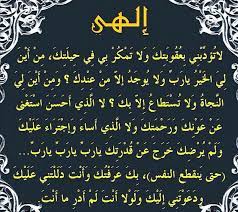 إلهي
لاتؤدبني بعقوبتك ولا تمكر بي في حيلتك، من أين
لي الخير يارب ولا يوجد إلا من عندك ؟ ومن أين لي
النجاة ولا تستطاع إلا بك ؟ لا الذي أحسن استغنى
عن عونك ورحمتك ولا الذي أساء واجترأ عليك
ولم يرضك خرج عن قدرتك يارب يارب يارب...
(حتى ينقطع النفس)، بك عرفتك وأنت دللتني عليك
ودعوتني إليك ولولا أنت لم أدر ما أنت.